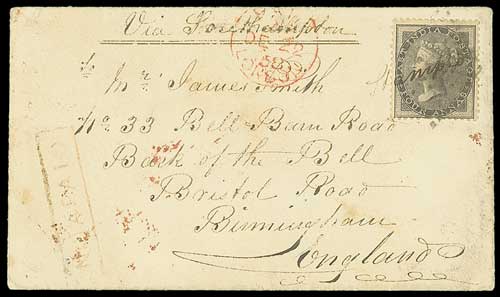 Via Southampton
INDIA POSTAGE
FOUR ANNAS
22
58
To
Mr. James Smith
No 33 Bell Barn Road
Back of the Bell
Bristol Road
Birmingham
England
INDIA PAID